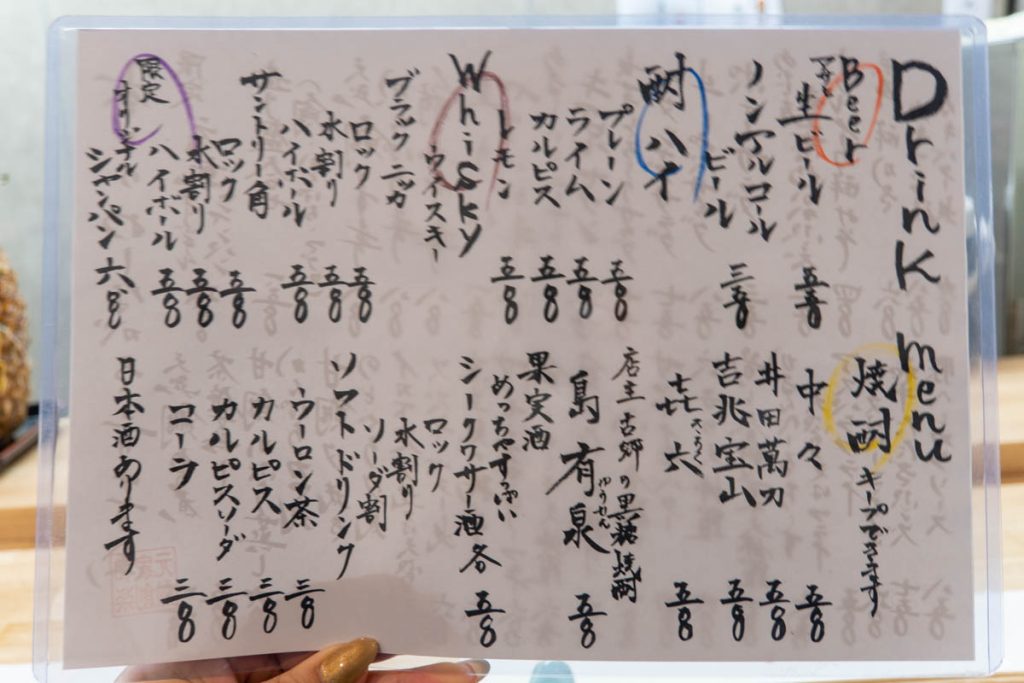 Drink menu
Beer
生ビール 五五〇
ノンアルコール
ビール 三五〇
酎ハイ
プレーン 五〇〇
ライム 五〇〇
カルピス 五〇〇
レモン 五〇〇
Whisky
ウイスキー
ブラックニッカ
ロック 五〇〇
水割り 五〇〇
ハイボール 五〇〇
サントリー角
ロック 五〇〇
水割り 五〇〇
ハイボール 五〇〇
限定
オリジナル
シャンパン 六〇〇
焼酎 キープできます
中々 五〇〇
井田萬力 五〇〇
吉兆宝山 五〇〇
㐂六 五〇〇
きろく
店主古郷の黒糖焼酎
島有泉 五〇〇
ゆうせん
果実酒
めっちゃすっぱい
シークワサー酒 各 五〇〇
ロック
水割り
ソーダ割
ソフトドリンク
ウーロン茶 三〇〇
カルピス 三〇〇
カルピスソーダ 三〇〇
コーラ 三〇〇
日本酒あります